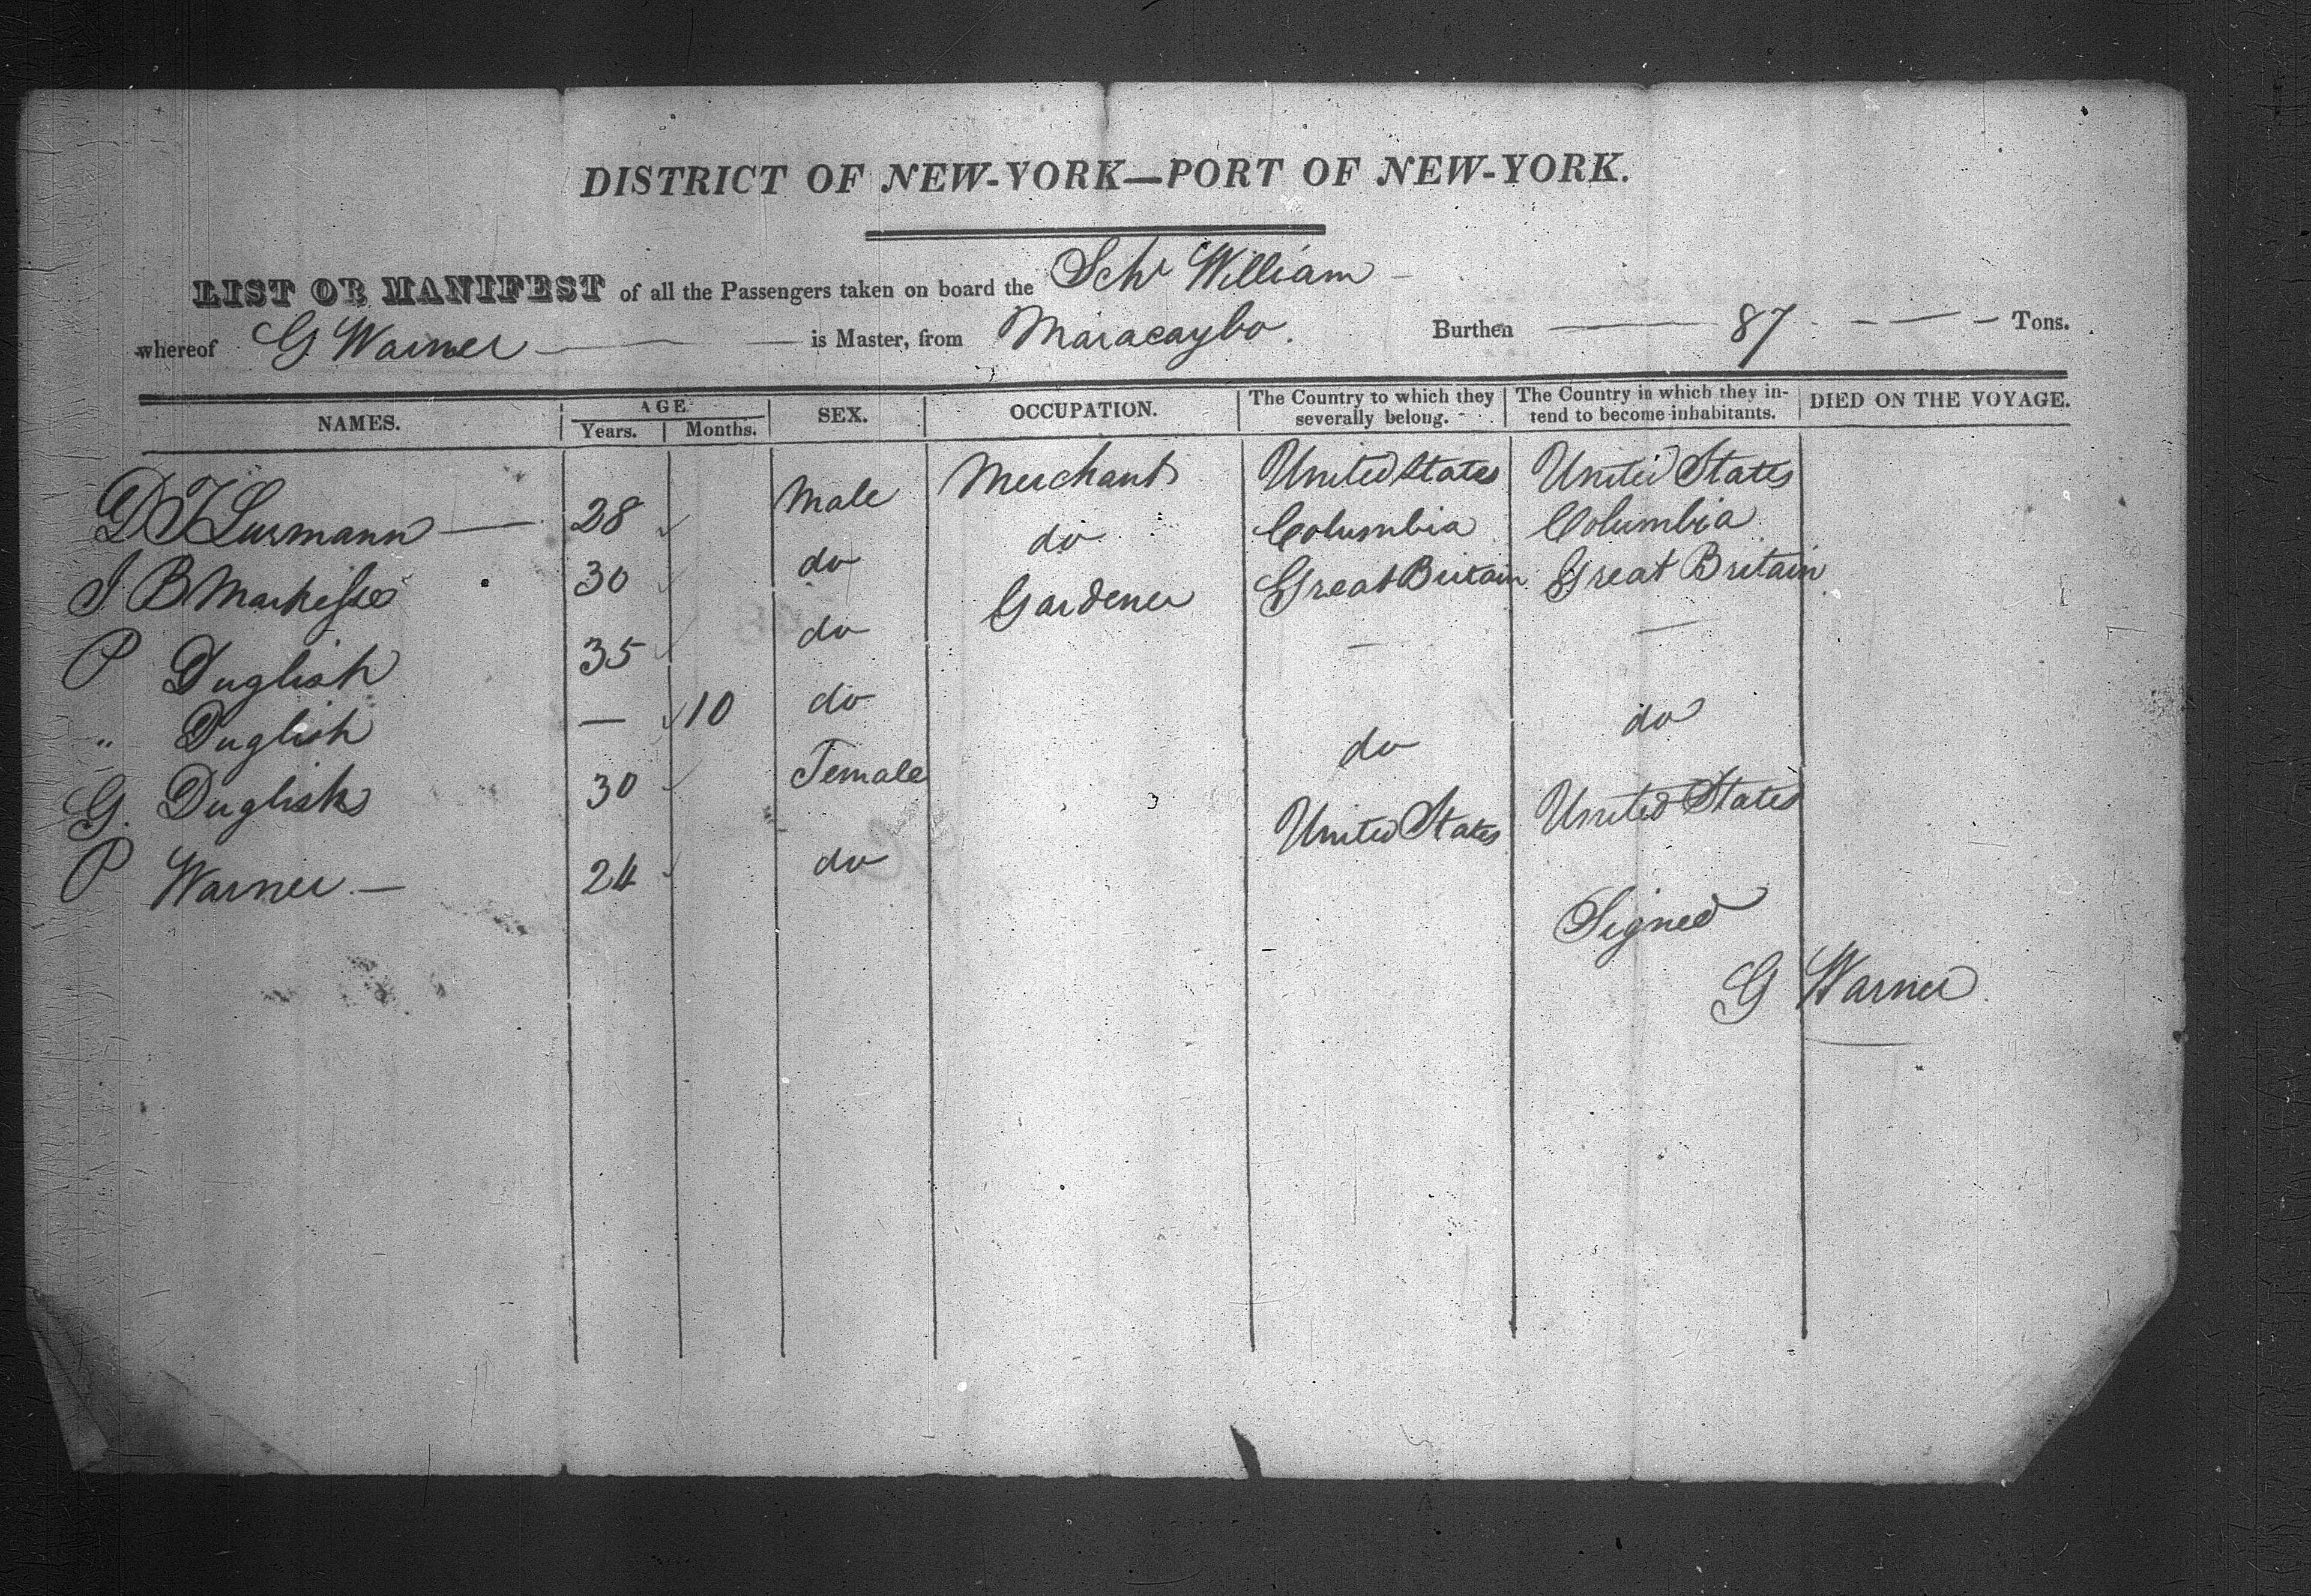 DISTRICT OF NEW-YORK—PORT OF NEW-YORK.
LIST OR MANIFEST of all the Passengers taken on board the Schr William
whereof G Warner is Master, from Maracaybo. Burthen 87 Tons.
NAMES. AGE. Years. Months. SEX. OCCUPATION. The Country to which they severally belong. The Country in which they intend to become inhabitants. DIED ON THE VOYAGE.
D T Lurmann — 28 Male Merchant United States United States
J B 30 do do Columbia Columbia
P Duglish 35 do Gardener Great Britain Great Britain
" Duglish — 10 do — —
G. Duglish 30 Female do do
P Warner — 24 do United States United States
Signed
G Warner